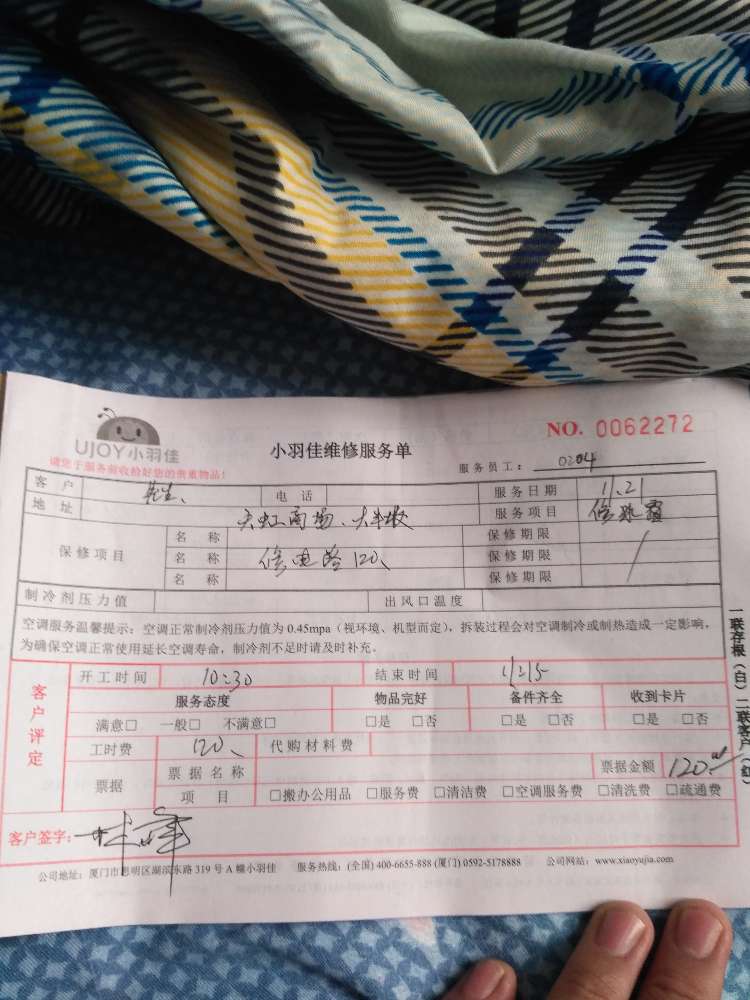 UJOY小羽佳
小羽佳维修服务单
NO. 0062272
请您于服务前收检好您的贵重物品!
服务员工: 0204
客户 电话 服务日期 1.21
地址 天虹商场、 服务项目
保修项目 名称 保修期限
名称 修电路120、 保修期限
名称 保修期限
制冷剂压力值 出风口温度
空调服务温馨提示:空调正常制冷剂压力值为 0.45mpa(视环境、机型而定),拆装过程会对空调制冷或制热造成一定影响,
为确保空调正常使用延长空调寿命,制冷剂不足时请及时补充。
客户评定
开工时间 10:30 结束时间
服务态度 物品完好 备件齐全 收到卡片
满意□ 一般□ 不满意□ □是 □否 □是 □否 □是 □否
工时费 120、 代购材料费
票据 票据名称 票据金额 120
项目 □搬办公用品 □服务费 □清洁费 □空调服务费 □清洗费 □疏通费
客户签字:
公司地址:厦门市思明区湖滨东路 319 号 A 幢小羽佳 服务热线:(全国) 400-6655-888 (厦门) 0592-5178888 公司网站:www.xiaoyujia.com
一联存根(白)二联客户(红)